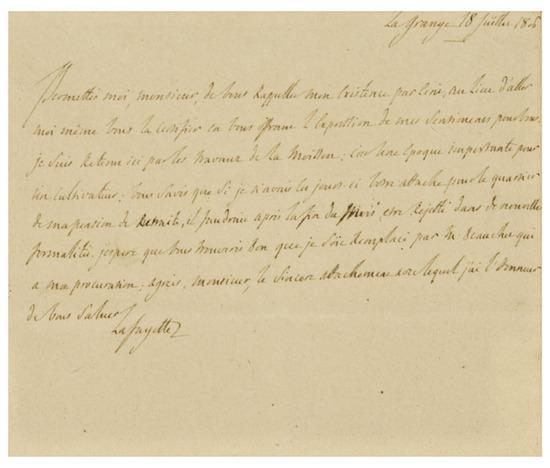 La Grange 18 juillet 18
Permettes moi, monsieur, de vous Rappeller mon Existence par Ecrit, au lieu d'aller
moi même vous la certifier en vous offrant l'Expression de mes sentimens pour vous.
je suis Retenu ici par les travaux de la Moisson; c'est une époque importante pour
un cultivateur; vous savés que si je n'avois ces jours ci votre attache pour le quartier
de ma pension de Retraite, il faudroit après la fin du mois etre Rejetté dans de nouvelles
formalités. j'espere que vous trouverés bon que je sois Remplacé par M. qui
a ma procuration; agrées, monsieur, le sincere attachement avec lequel j'ai l'honneur
de vous saluer
Lafayette